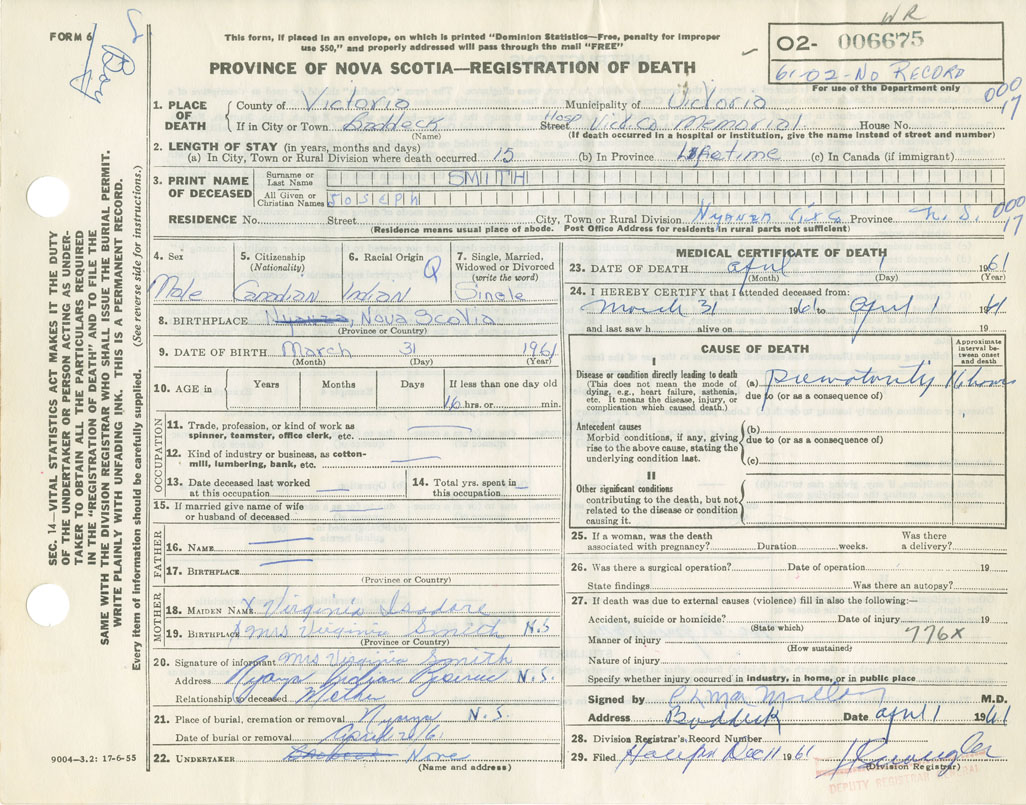 WR
FORM 6
This form, if placed in an envelope, on which is printed "Dominion Statistics—Free, penalty for improper
use $50," and properly addressed will pass through the mail "FREE"
02- 006675
61-02-No Record
For use of the Department only
PROVINCE OF NOVA SCOTIA—REGISTRATION OF DEATH
000
17
1. PLACE OF DEATH County of Victoria Municipality of Victoria
If in City or Town Baddeck Street Hosp Vict. Co Memorial House No.
(Name) (If death occurred in a hospital or institution, give the name instead of street and number)
2. LENGTH OF STAY (in years, months and days)
(a) In City, Town or Rural Division where death occurred 15 (b) In Province Lifetime (c) In Canada (if immigrant)
3. PRINT NAME OF DECEASED Surname or Last Name SMITH
All Given or Christian Names JOSEPH
RESIDENCE No. Street City, Town or Rural Division Nyanza Vix Co Province N.S. 000
17
(Residence means usual place of abode. Post Office Address for residents in rural parts not sufficient)
4. Sex 5. Citizenship (Nationality) 6. Racial Origin 7. Single, Married, Widowed or Divorced (write the word)
Male Canadian Indian Single
8. BIRTHPLACE Nyanza, Nova Scotia
(Province or Country)
9. DATE OF BIRTH March 31 1961
(Month) (Day) (Year)
10. AGE in Years Months Days If less than one day old
16 hrs. or min.
OCCUPATION
11. Trade, profession, or kind of work as spinner, teamster, office clerk, etc.
12. Kind of industry or business, as cotton-mill, lumbering, bank, etc.
13. Date deceased last worked at this occupation 14. Total yrs. spent in this occupation
15. If married give name of wife or husband of deceased
FATHER
16. NAME
17. BIRTHPLACE
(Province or Country)
MOTHER
18. MAIDEN NAME Virginia Isadore
19. BIRTHPLACE Mrs Virginia Smith N.S
(Province or Country)
20. Signature of informant Mrs Virginia Smith
Address Indian N.S.
Relationship to deceased Mother
21. Place of burial, cremation or removal N.S.
Date of burial or removal April 61
22. UNDERTAKER None
(Name and address)
9004—3.2: 17-6-55
MEDICAL CERTIFICATE OF DEATH
23. DATE OF DEATH April 1 1961
(Month) (Day) (Year)
24. I HEREBY CERTIFY that I attended deceased from:
March 31 1961 to April 1 1961
and last saw h alive on 19
CAUSE OF DEATH
Approximate interval between onset and death
I
Disease or condition directly leading to death
(This does not mean the mode of dying, e.g., heart failure, asthenia, etc. It means the disease, injury, or complication which caused death.)
(a) Prematurity 16 hours
due to (or as a consequence of)
Antecedent causes
Morbid conditions, if any, giving rise to the above cause, stating the underlying condition last.
(b)
due to (or as a consequence of)
(c)
II
Other significant conditions
contributing to the death, but not related to the disease or condition causing it.
25. If a woman, was the death associated with pregnancy? Duration weeks. Was there a delivery?
26. Was there a surgical operation? Date of operation 19
State findings Was there an autopsy?
27. If death was due to external causes (violence) fill in also the following:—
Accident, suicide or homicide? Date of injury 19
(State which)
776X
Manner of injury
(How sustained)
Nature of injury
Specify whether injury occurred in industry, in home, or in public place
Signed by M.D.
Address Baddeck Date April 1 1961
28. Division Registrar's Record Number
29. Filed Halifax Dec 11 1961
(Division Registrar)
DEPUTY REGISTRAR GENERAL
SEC. 14—VITAL STATISTICS ACT MAKES IT THE DUTY
OF THE UNDERTAKER OR PERSON ACTING AS UNDER-
TAKER TO OBTAIN ALL THE PARTICULARS REQUIRED
IN THE "REGISTRATION OF DEATH" AND TO FILE THE
SAME WITH THE DIVISION REGISTRAR WHO SHALL ISSUE THE BURIAL PERMIT.
WRITE PLAINLY WITH UNFADING INK. THIS IS A PERMANENT RECORD.
Every item of information should be carefully supplied. (See reverse side for instructions.)